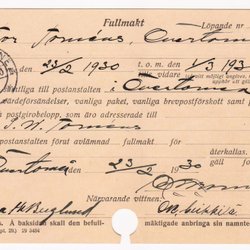 Fullmakt
Löpande nr
för Tornéus, Övertorneå
23/2 1930 t. o. m. 1/3 193
tills vidare
till postanstalten i Övertorneå
värdeförsändelser, vanliga paket, vanliga brevpostförskott samt
å postgirobelopp, som äro adresserade till
Tornéus
postanstalten förut avlämnad fullmakt för
återkallas.
Övertorneå den 23/2 1930
Närvarande vittnen:
Berglund
s. Å baksidan skall den befull-
mäktigade anbringa sin namnte
29 3484